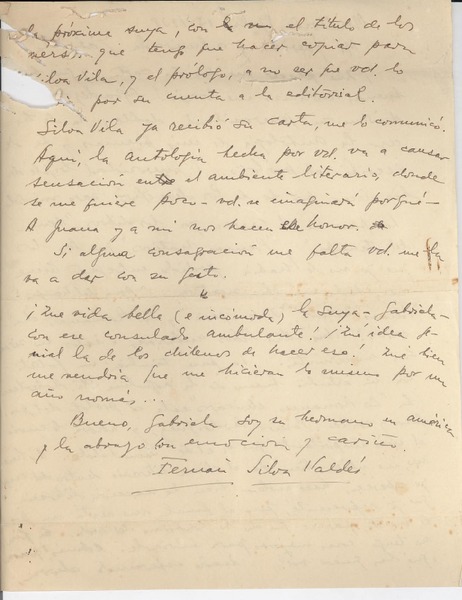 la próxima suya, con el título de los
versos que tengo que hacer copiar para
Silva Vila, y el prólogo, a no ser que vd. lo
por su cuenta a la editorial.
Silva Vila ya recibió su carta, me lo comunicó.
Aquí, la antología hecha por vd. va a causar
sensación en el ambiente literario, donde
se me quiere poco - vd. se imaginará porqué -
A Juana y a mí nos hacen honor.
Si alguna consagración me falta vd. me la
va a dar con su gesto.
¡Qué vida bella (e incómoda) la suya - Gabriela -
con ese consulado ambulante! ¡Qué idea ge-
nial la de los chilenos de hacer eso! ¡Qué bien
me vendría que me hicieran lo mismo por un
año nomás,...
Bueno, Gabriela soy su hermano en américa
y la abrazo con emoción y cariño.
Fernán Silva Valdés